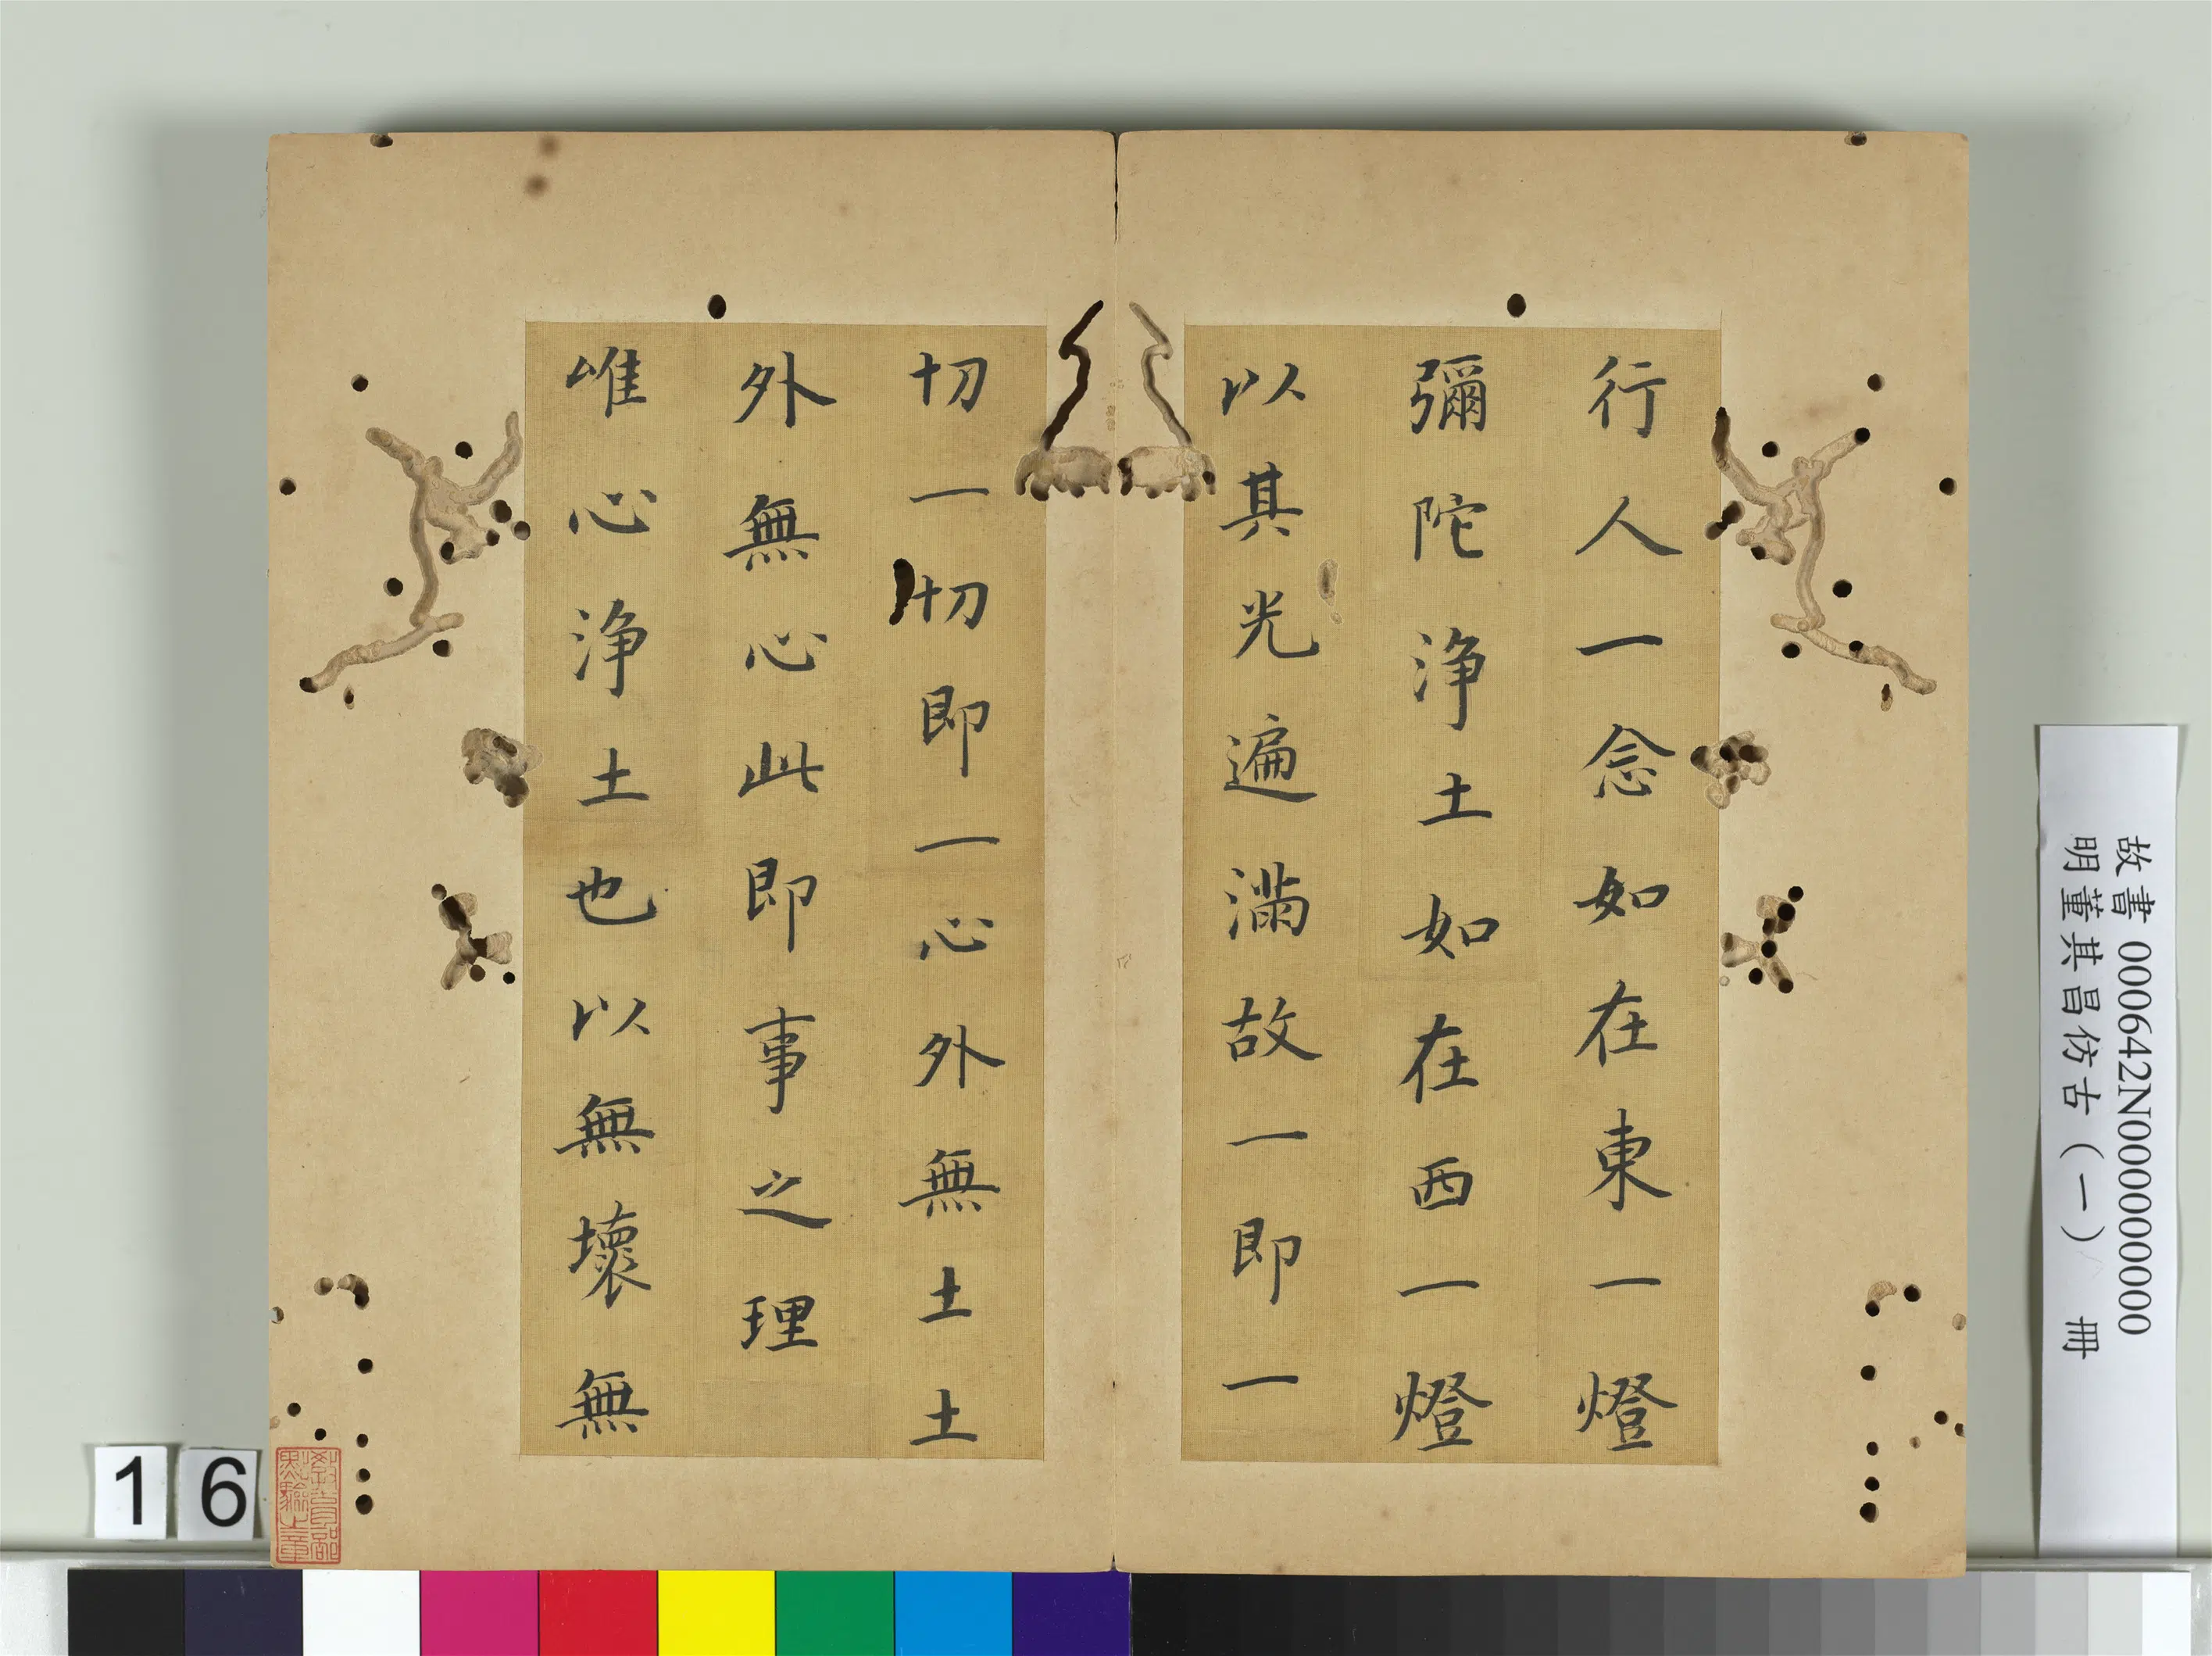 行人一念如在東一燈
彌陀浄土如在西一燈
以其光遍滿故一即一
切一切即一心外無土土
外無心此即事之理
唯心浄土也以無壞無
教育部
點驗之章
16
故書 000642N000000000
明董其昌仿古(一) 冊